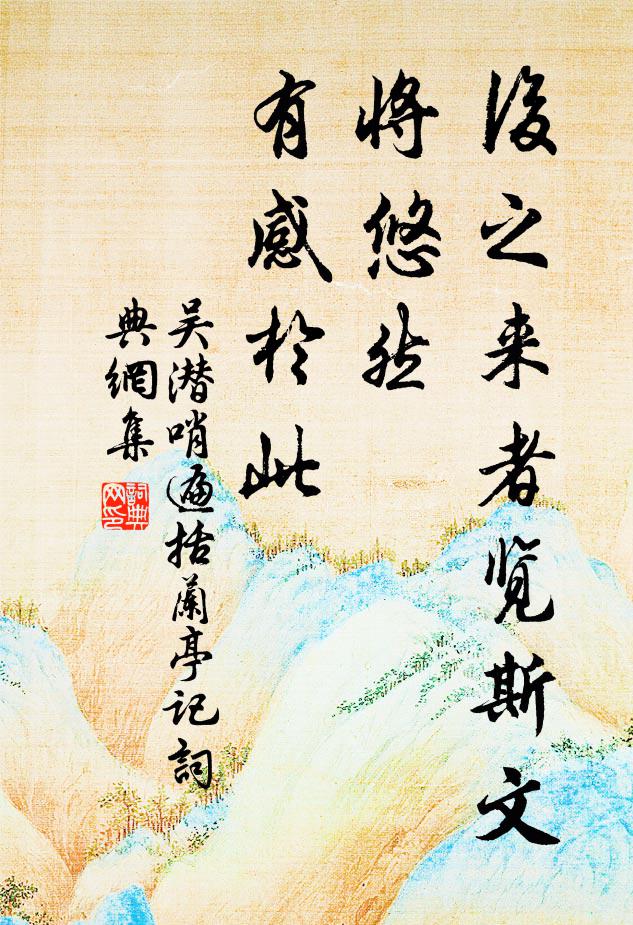 後之来者览斯文
將悠然
有感於此
吴潜哨遍括蘭亭记詞
典網集
詞典
网印